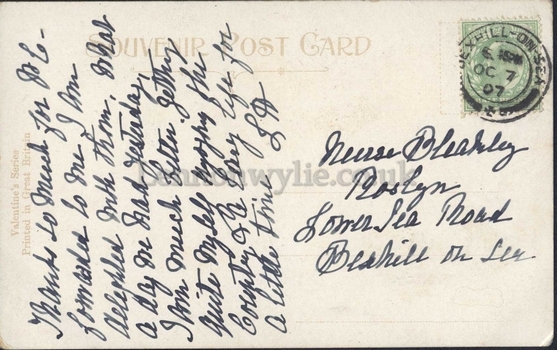 SOUVENIR POST CARD
Valentine's Series
Printed in Great Britain
BEXHILL-ON-SEA
OC 7
07
Thanks so much for P.C-
forwarded to me. I am
delighted with them. What
a day we had yesterday,
I am much better. Getting
quite myself enjoying the
Country & a lazy life for
a little time
Nurse Bleakley
Roslyn
Lower Sea Road
Bexhill on Sea
Lennonwylie.co.uk